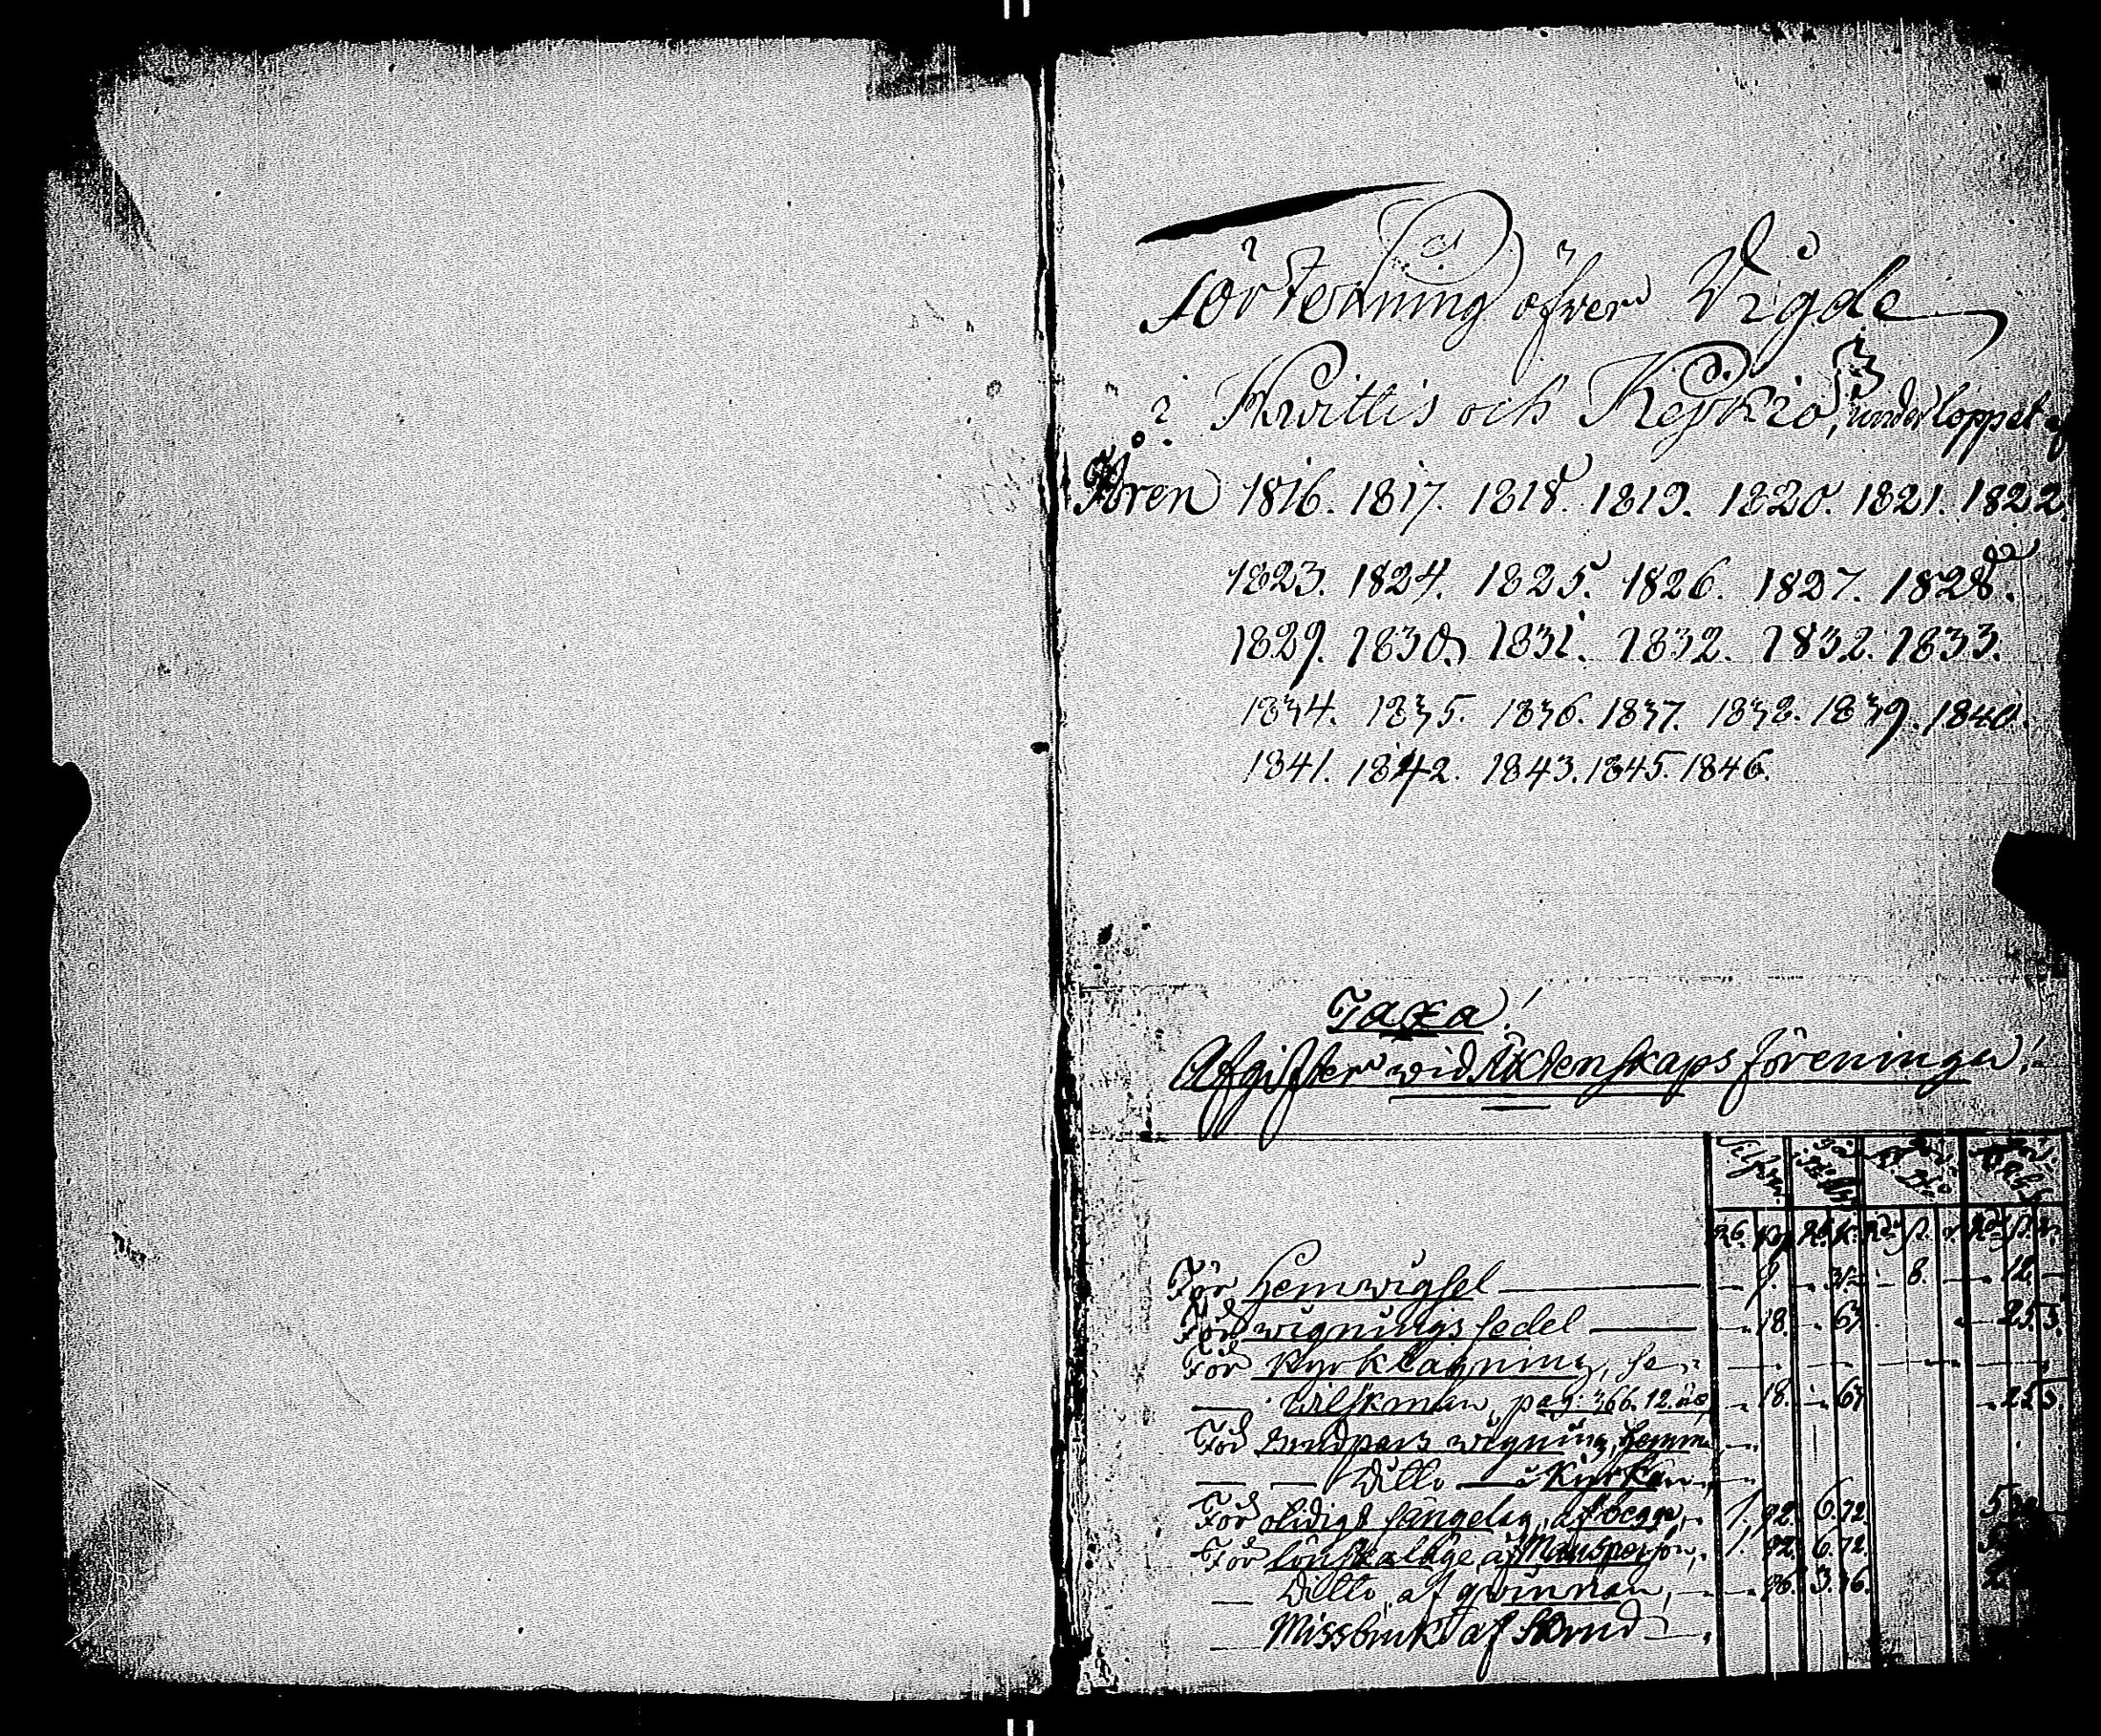 Förtekning öfver Vigde
i Hvittis och Keikiö, under loppet af
Åren 1816. 1817. 1818. 1819. 1820. 1821. 1822.
1823. 1824. 1825. 1826. 1827. 1828.
1829. 1830. 1831. 1832. 1832. 1833.
1834. 1835. 1836. 1837. 1838. 1839. 1840.
1841. 1842. 1843. 1845. 1846.
Taxa!
Afgifter wid Äktenskaps föreningar!
För hemwigsel 8. 12.
För wignings sedel 18. 67 25 5.
För Kyrktagning, se
Wilskman, pag: 366. 12. 18. 67 25 5.
För wigning, hemma
Ditto i Kyrkan
För otidigt sängelag, af begge, 1. 92. 6. 72. 5
För lönskaläge, af Mansperson, 1. 92. 6. 72. 5
Ditto, af qwinnan, 96. 3. 36. 2
Missbruk af